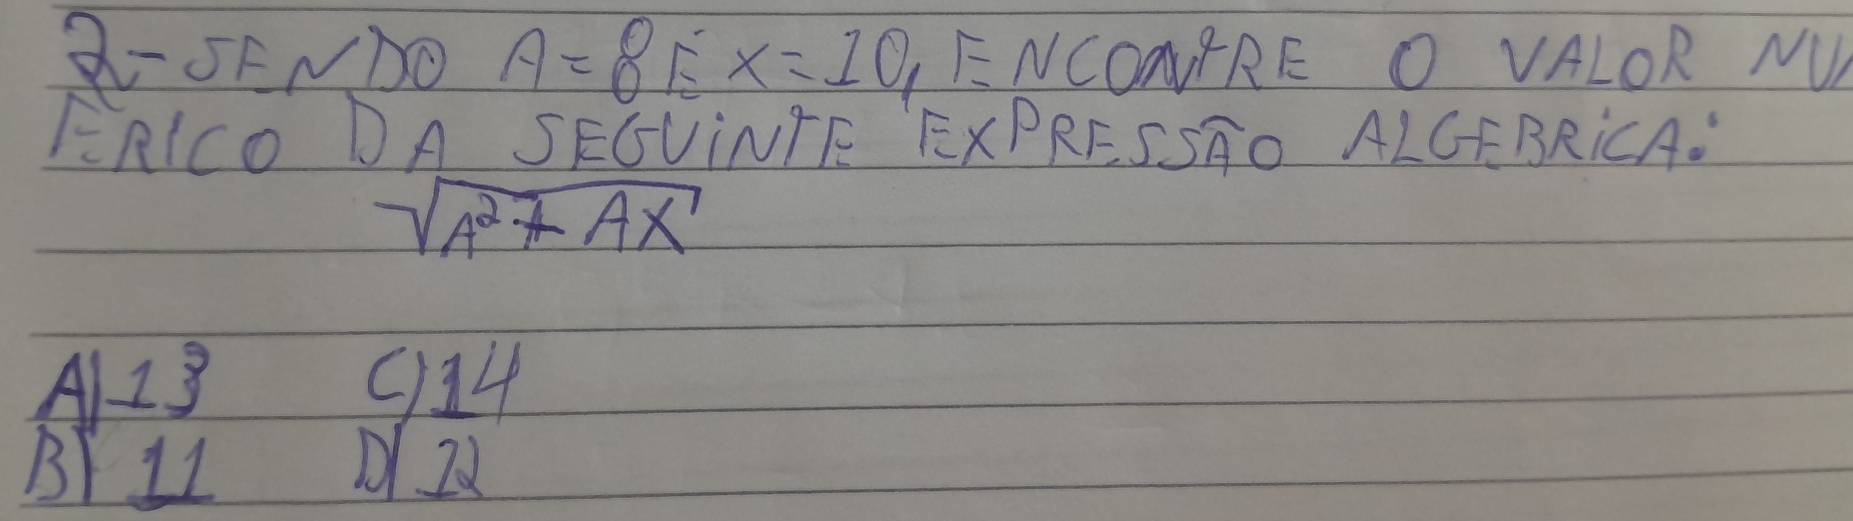 2-SENDO A=8 E X=10, ENCONTRE O VALOR NUM
ÉRICO DA SEGUINTE EXPRESSÃO ALGEBRICA:
√A²+AX
A) 13 C) 14
B) 11 D) 12